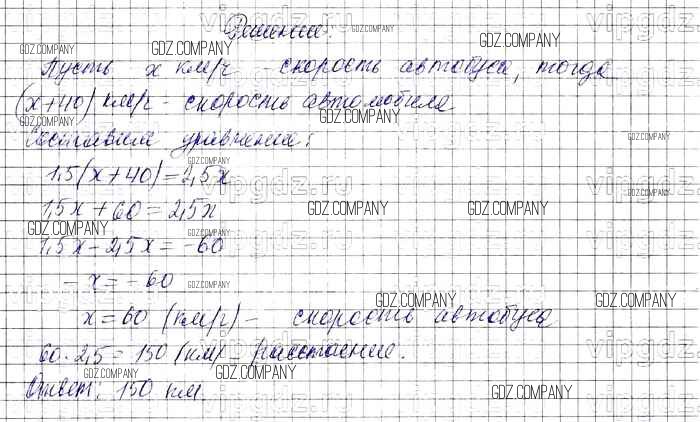 Решение.
Пусть x км/ч - скорость автобуса, тогда
(x+40) км/ч - скорость автомобиля
Составим уравнение:
1,5(x+40)=2,5x
1,5x+60=2,5x
1,5x-2,5x=-60
-x=-60
x=60 (км/ч)- скорость автобуса
60·2,5=150 (км)- расстояние.
Ответ: 150 км
GDZ.COMPANY
vipgdz.ru